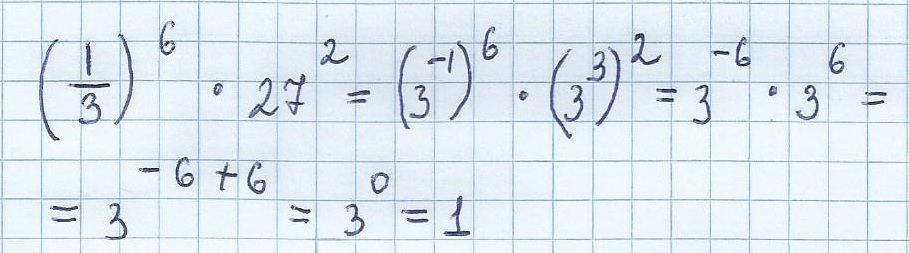 (1/3)^6 · 27^2 = (3^-1)^6 · (3^3)^2 = 3^-6 · 3^6 =
= 3^-6+6 = 3^0 = 1